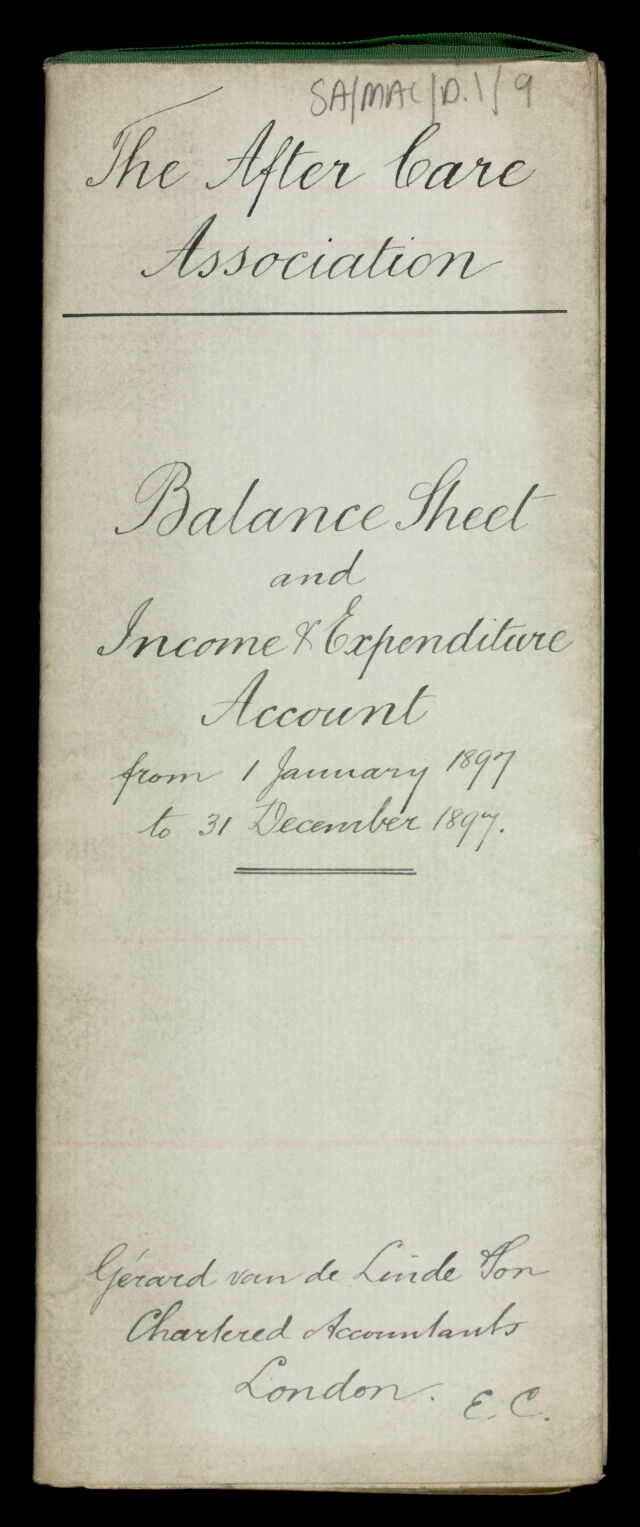 SA/MAC/D.1/9
The After Care
Association
Balance Sheet
and
Income & Expenditure
Account
from 1 January 1897
to 31 December 1897.
Gérard van de Linde & Son
Chartered Accountants
London. E.C.